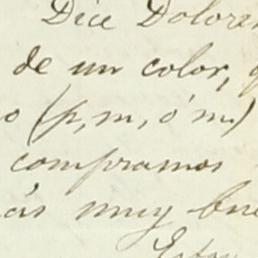 Dice Dolores
de un color,
o (p, m, ó m.)
compramos
ás muy bue